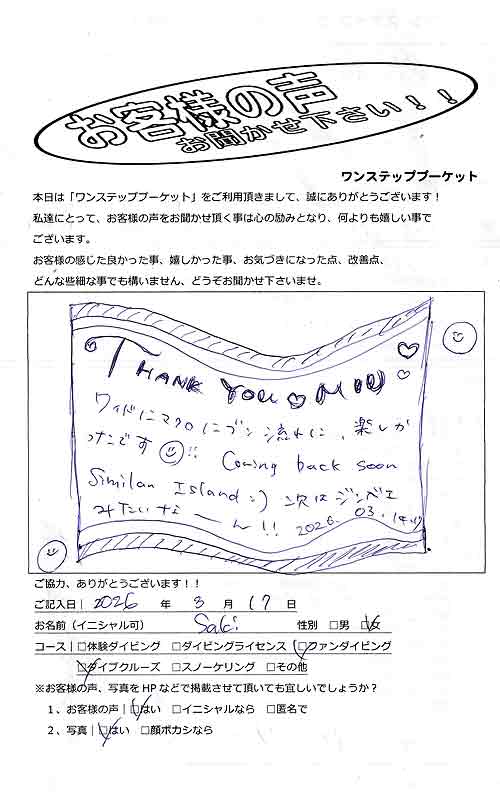 お客様の声
お聞かせ下さい!!
ワンステッププーケット
本日は「ワンステッププーケット」をご利用頂きまして、誠にありがとうございます!
私達にとって、お客様の声をお聞かせ頂く事は心の励みとなり、何よりも嬉しい事で
ございます。
お客様の感じた良かった事、嬉しかった事、お気づきになった点、改善点、
どんな些細な事でも構いません、どうぞお聞かせ下さいませ。
THANK YOU
ワイドにマクロに 流れに、楽しか
ったです!!
Coming back soon
Similan Island :) 次はジンベエ
みたいなーーん!!
2026. 03.
ご協力、ありがとうございます!!
ご記入日| 2026 年 3 月 17 日
お名前(イニシャル可) Saki 性別 □男 □女
コース|□体験ダイビング □ダイビングライセンス □ファンダイビング
□ダイブクルーズ □スノーケリング □その他
※お客様の声、写真をHPなどで掲載させて頂いても宜しいでしょうか?
1、お客様の声|□はい □イニシャルなら □匿名で
2、写真|□はい □顔ボカシなら